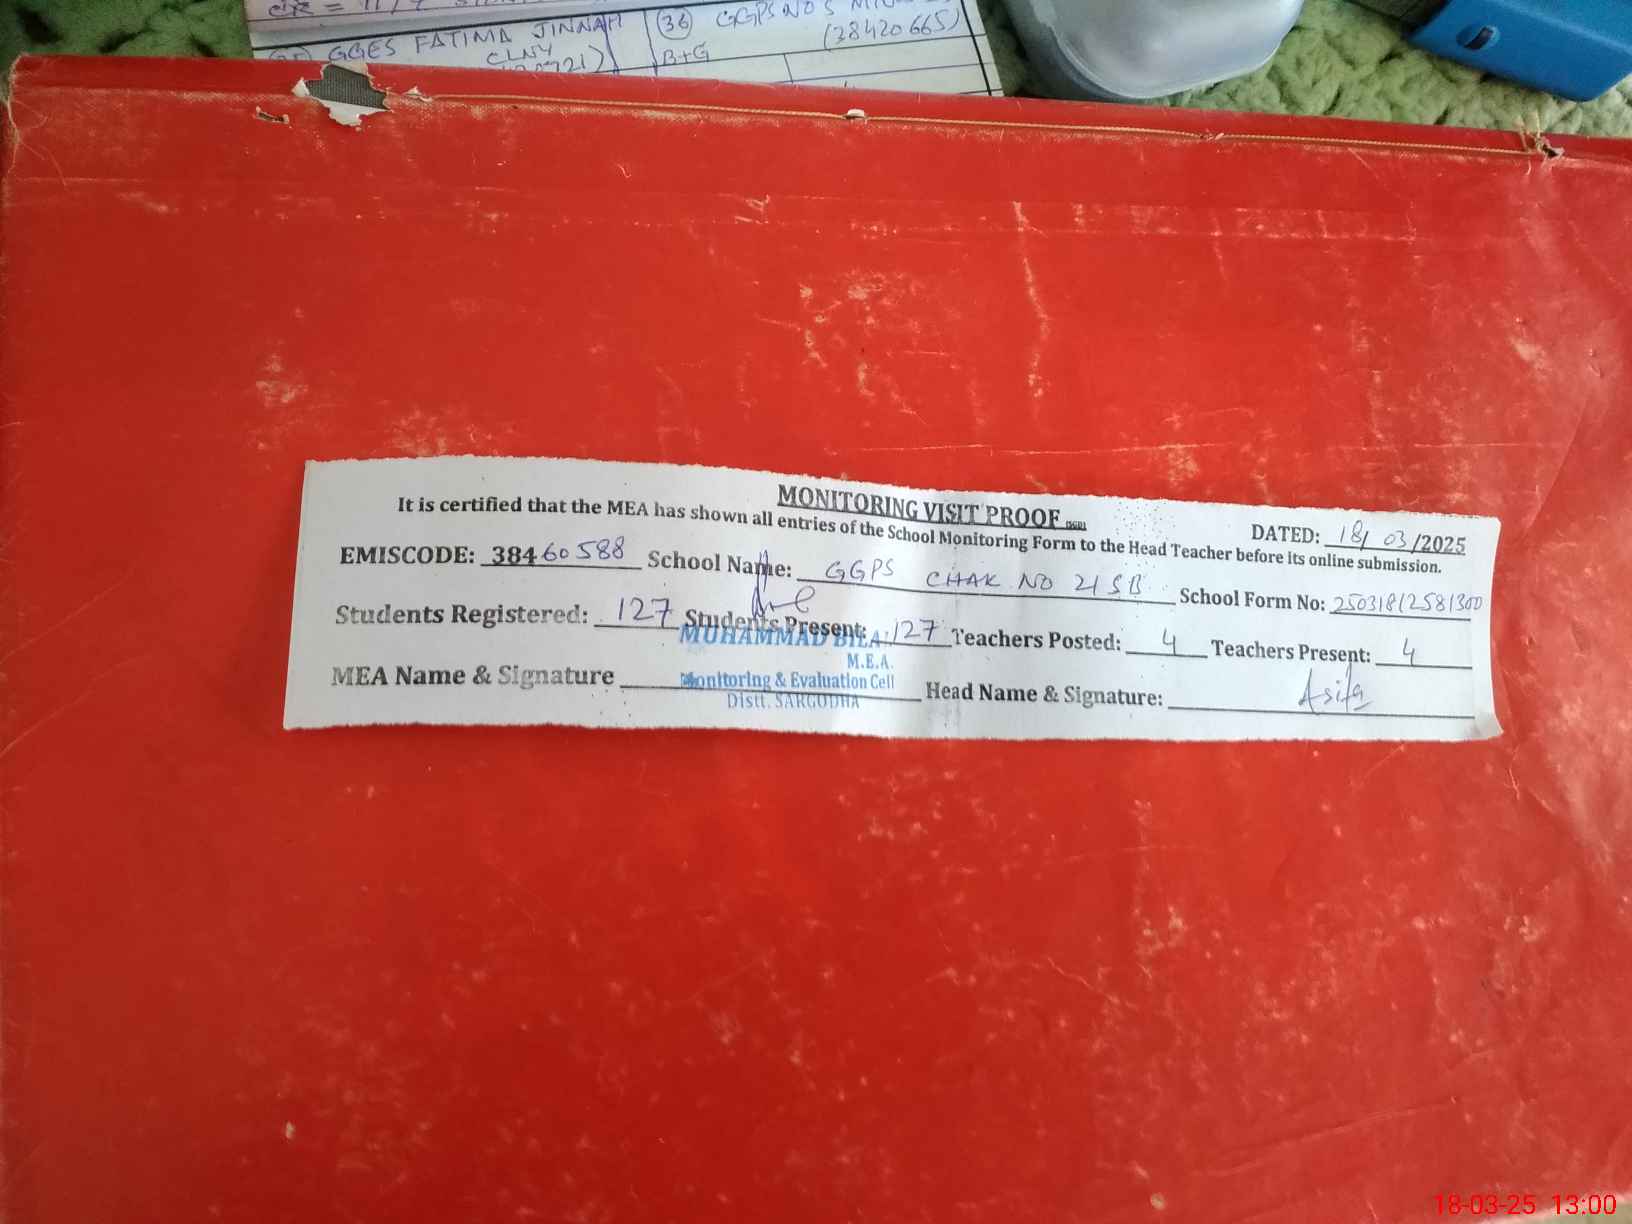 GGES FATIMA JINNAH
CLNY
36 GGPS NO 5
(38420665)
B+G
MONITORING VISIT PROOF
DATED: 18/03/2025
It is certified that the MEA has shown all entries of the School Monitoring Form to the Head Teacher before its online submission.
EMISCODE: 38460588 School Name: GGPS CHAK NO 21 SB School Form No: 25031812581300
Students Registered: 127 Students Present: 127 Teachers Posted: 4 Teachers Present: 4
MUHAMMAD BILAL
M.E.A.
MEA Name & Signature Head Name & Signature: Asifa
Monitoring & Evaluation Cell
Distt. SARGODHA
18-03-25 13:00